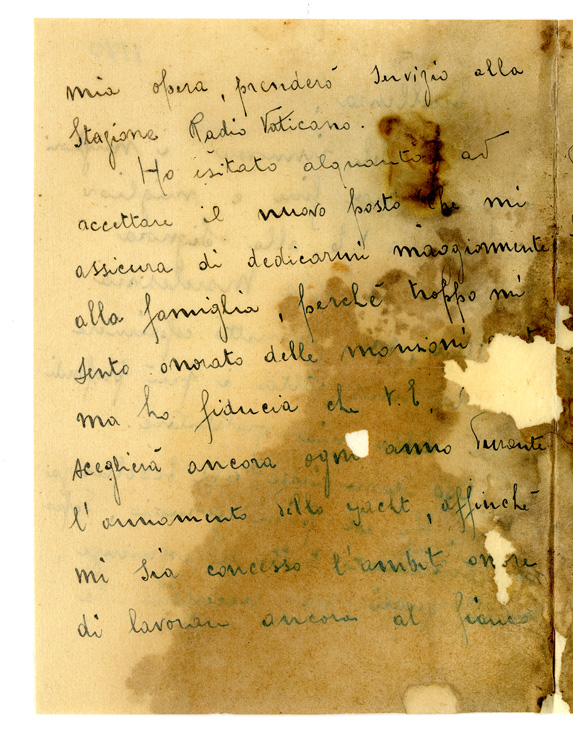 mia opera, prenderò servizio alla
Stazione Radio Vaticano.
Ho esitato alquanto ad
accettare il nuovo posto che mi
assicura di dedicarmi maggiormente
alla famiglia, perchè troppo mi
sento onorato delle mansioni
ma ho fiducia che V.E.
sceglierà ancora ogni anno durante
l'armamento dello yacht, affinchè
mi sia concesso l'ambito onore
di lavorare ancora al fianco